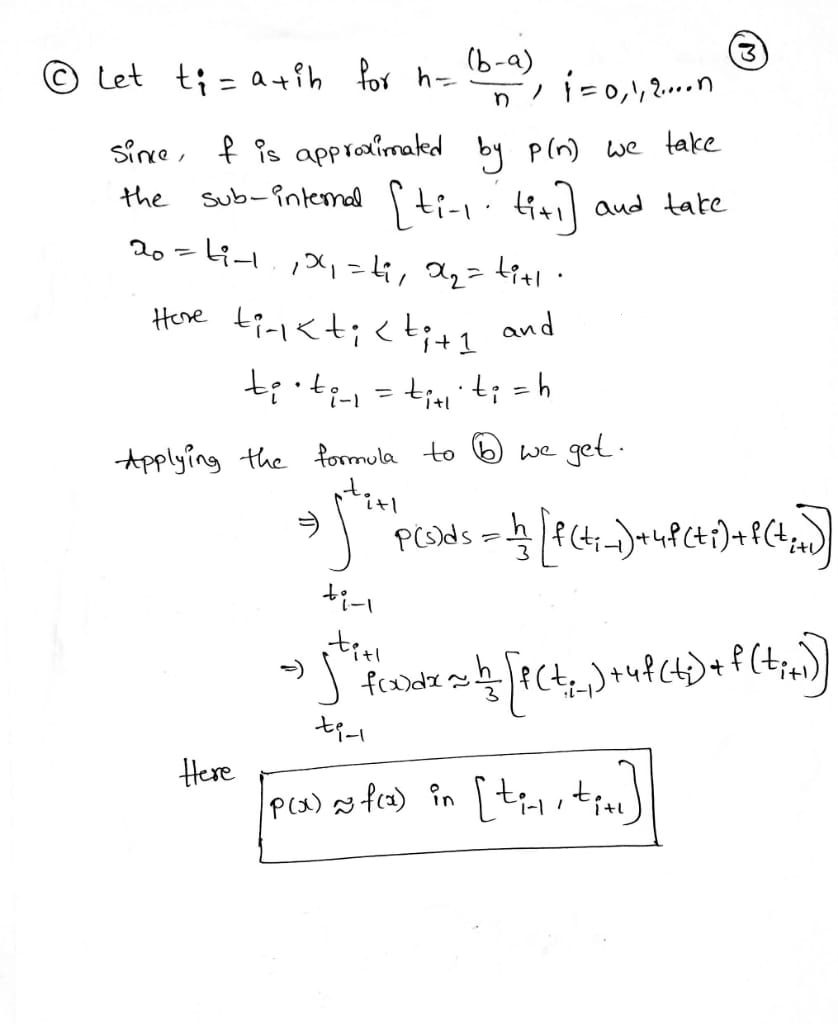 ③
ⓒ Let tᵢ = a+ih for h = (b-a)/n , i=0,1,2.....n
Since, f is approximated by p(n) we take
the sub-internal [tᵢ₋₁ . tᵢ₊₁] and take
x₀ = tᵢ₋₁ , x₁ = tᵢ, x₂ = tᵢ₊₁ .
Here tᵢ₋₁ < tᵢ < tᵢ₊₁ and
tᵢ · tᵢ₋₁ = tᵢ₊₁ · tᵢ = h
Applying the formula to ⓑ we get.
⇒ ∫_{tᵢ₋₁}^{tᵢ₊₁} p(s)ds = h/3 [f(tᵢ₋₁)+4f(tᵢ)+f(tᵢ₊₁)]
⇒ ∫_{tᵢ₋₁}^{tᵢ₊₁} f(x)dx ≈ h/3 [f(tᵢ₋₁)+4f(tᵢ)+f(tᵢ₊₁)]
Here
p(x) ≈ f(x) in [tᵢ₋₁ , tᵢ₊₁]